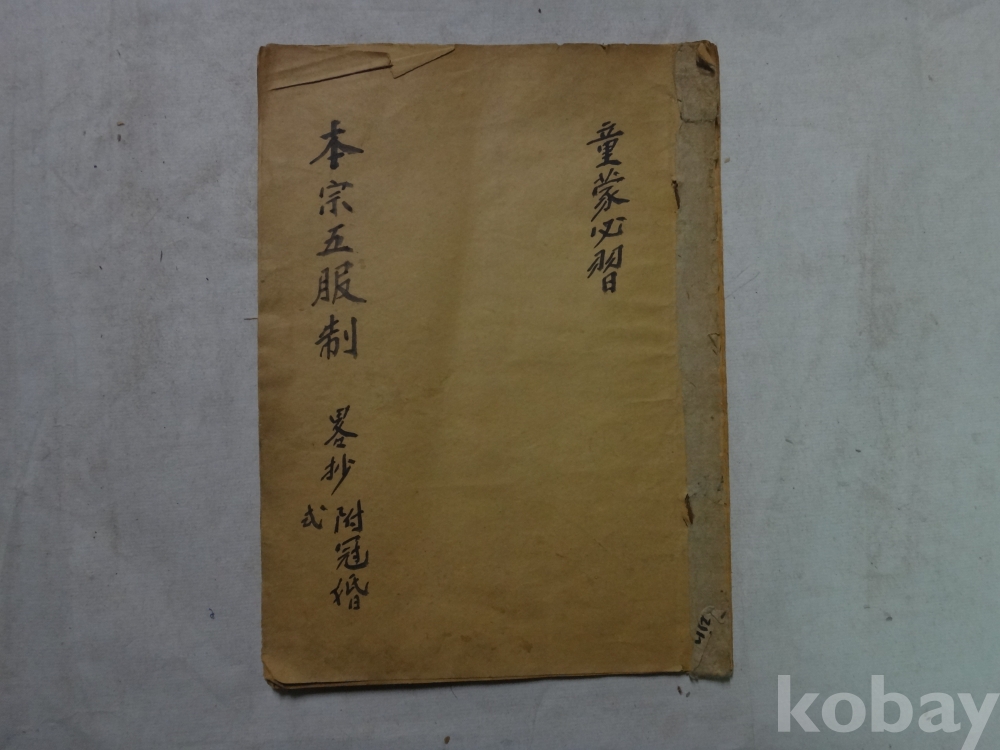 童蒙必習
本宗五服制 畧抄 附冠婚
式
kobay